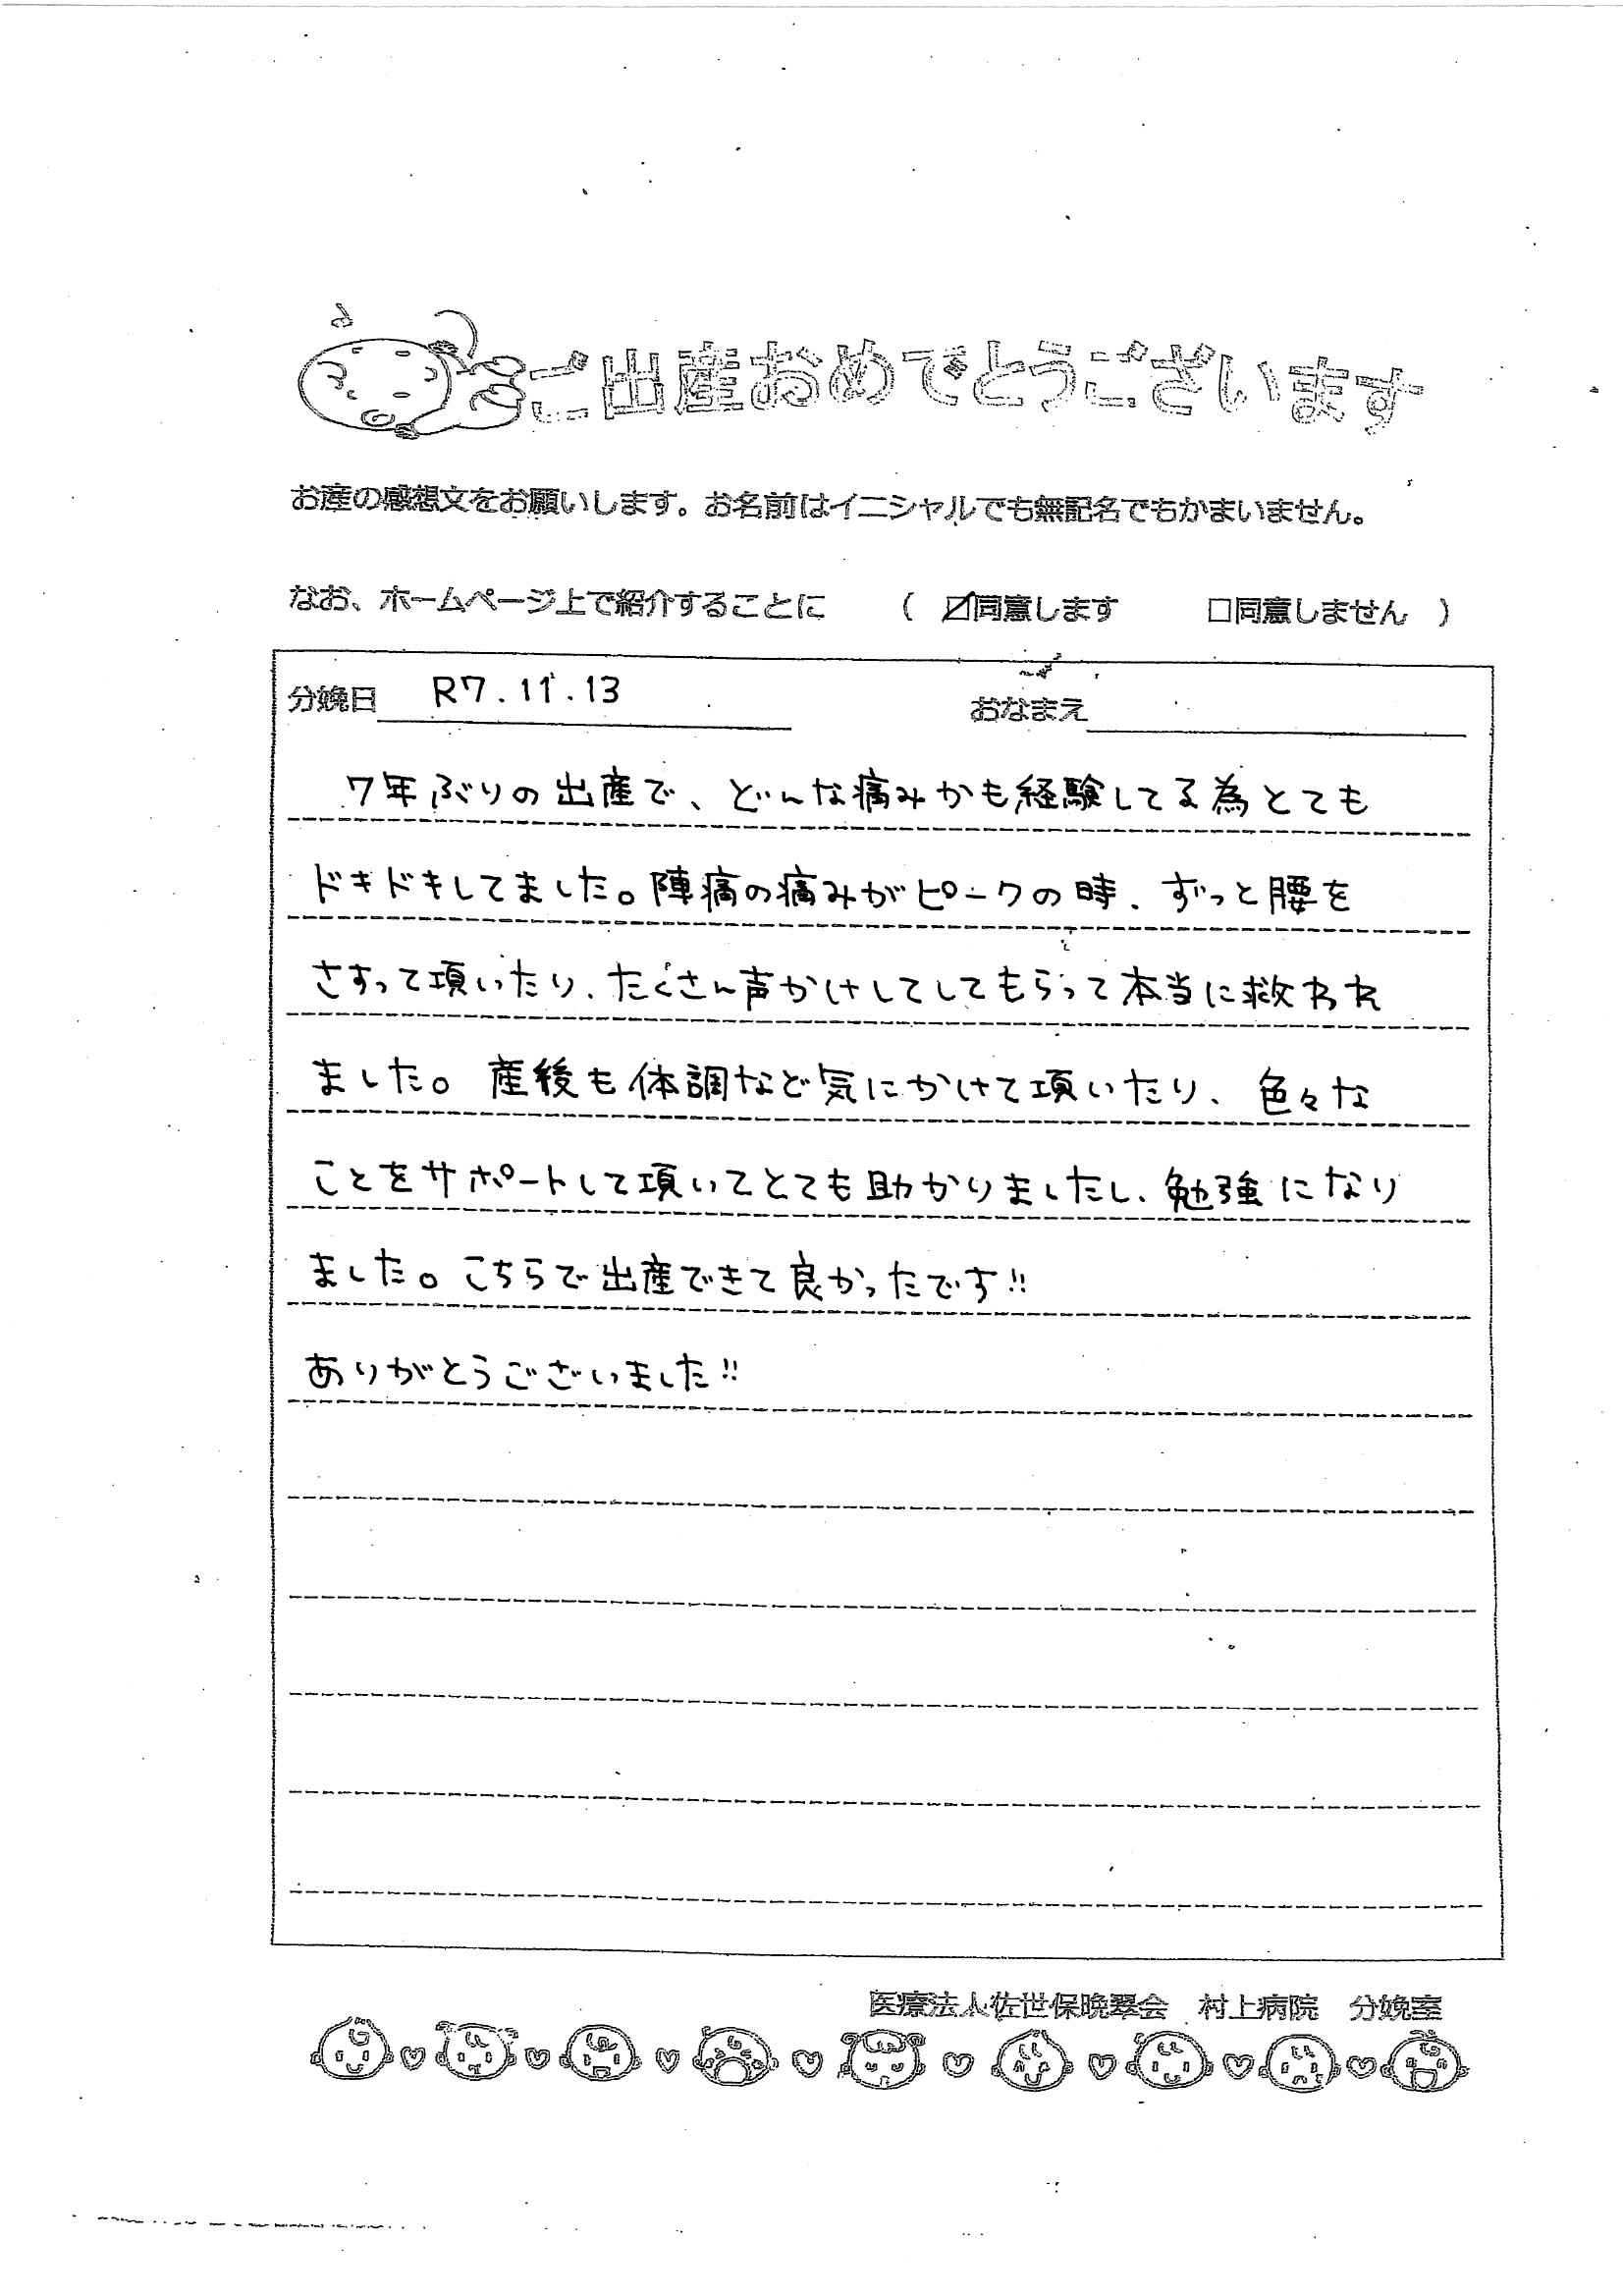 ご出産おめでとうございます
お産の感想文をお願いします。お名前はイニシャルでも無記名でもかまいません。
なお、ホームページ上で紹介することに　（ ☑同意します　□同意しません ）
分娩日 R7.11.13　おなまえ
7年ぶりの出産で、どんな痛みかも経験してる為とても
ドキドキしてました。陣痛の痛みがピークの時、ずっと腰を
さすって頂いたり、たくさん声かけしてしてもらって本当に救われ
ました。産後も体調など気にかけて頂いたり、色々な
ことをサポートして頂いてとても助かりましたし、勉強になり
ました。こちらで出産できて良かったです!!
ありがとうございました!!
医療法人佐世保晩翠会　村上病院　分娩室